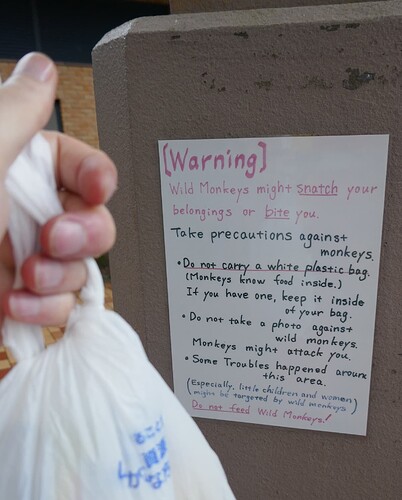 [Warning]
Wild Monkeys might snatch your
belongings or bite you.
Take precautions against
monkeys.
• Do not carry a white plastic bag.
(Monkeys know food inside.)
If you have one, keep it inside
of your bag.
• Do not take a photo against
wild monkeys.
Monkeys might attack you.
• Some Troubles happened around
this area.
(Especially, little children and women
might be targeted by wild monkeys)
Do not feed Wild Monkeys!